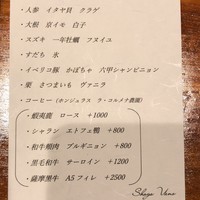 ・人参 イタヤ貝 クラゲ
・大根 京イモ 白子
・スズキ 一年牡蠣 フヌイユ
・すだち 氷
・イベリコ豚 かぼちゃ 六甲シャンピニョン
・栗 さつまいも ヴァニラ
・コーヒー (ホンジュラス ラ・コルメナ農園)
・蝦夷鹿 ロース +1000
・シャラン エトフェ鴨 +800
・和牛頬肉 ブルギニョン +800
・黒毛和牛 サーロイン +1200
・薩摩黒牛 A5フィレ +2500
Shogo Ueno